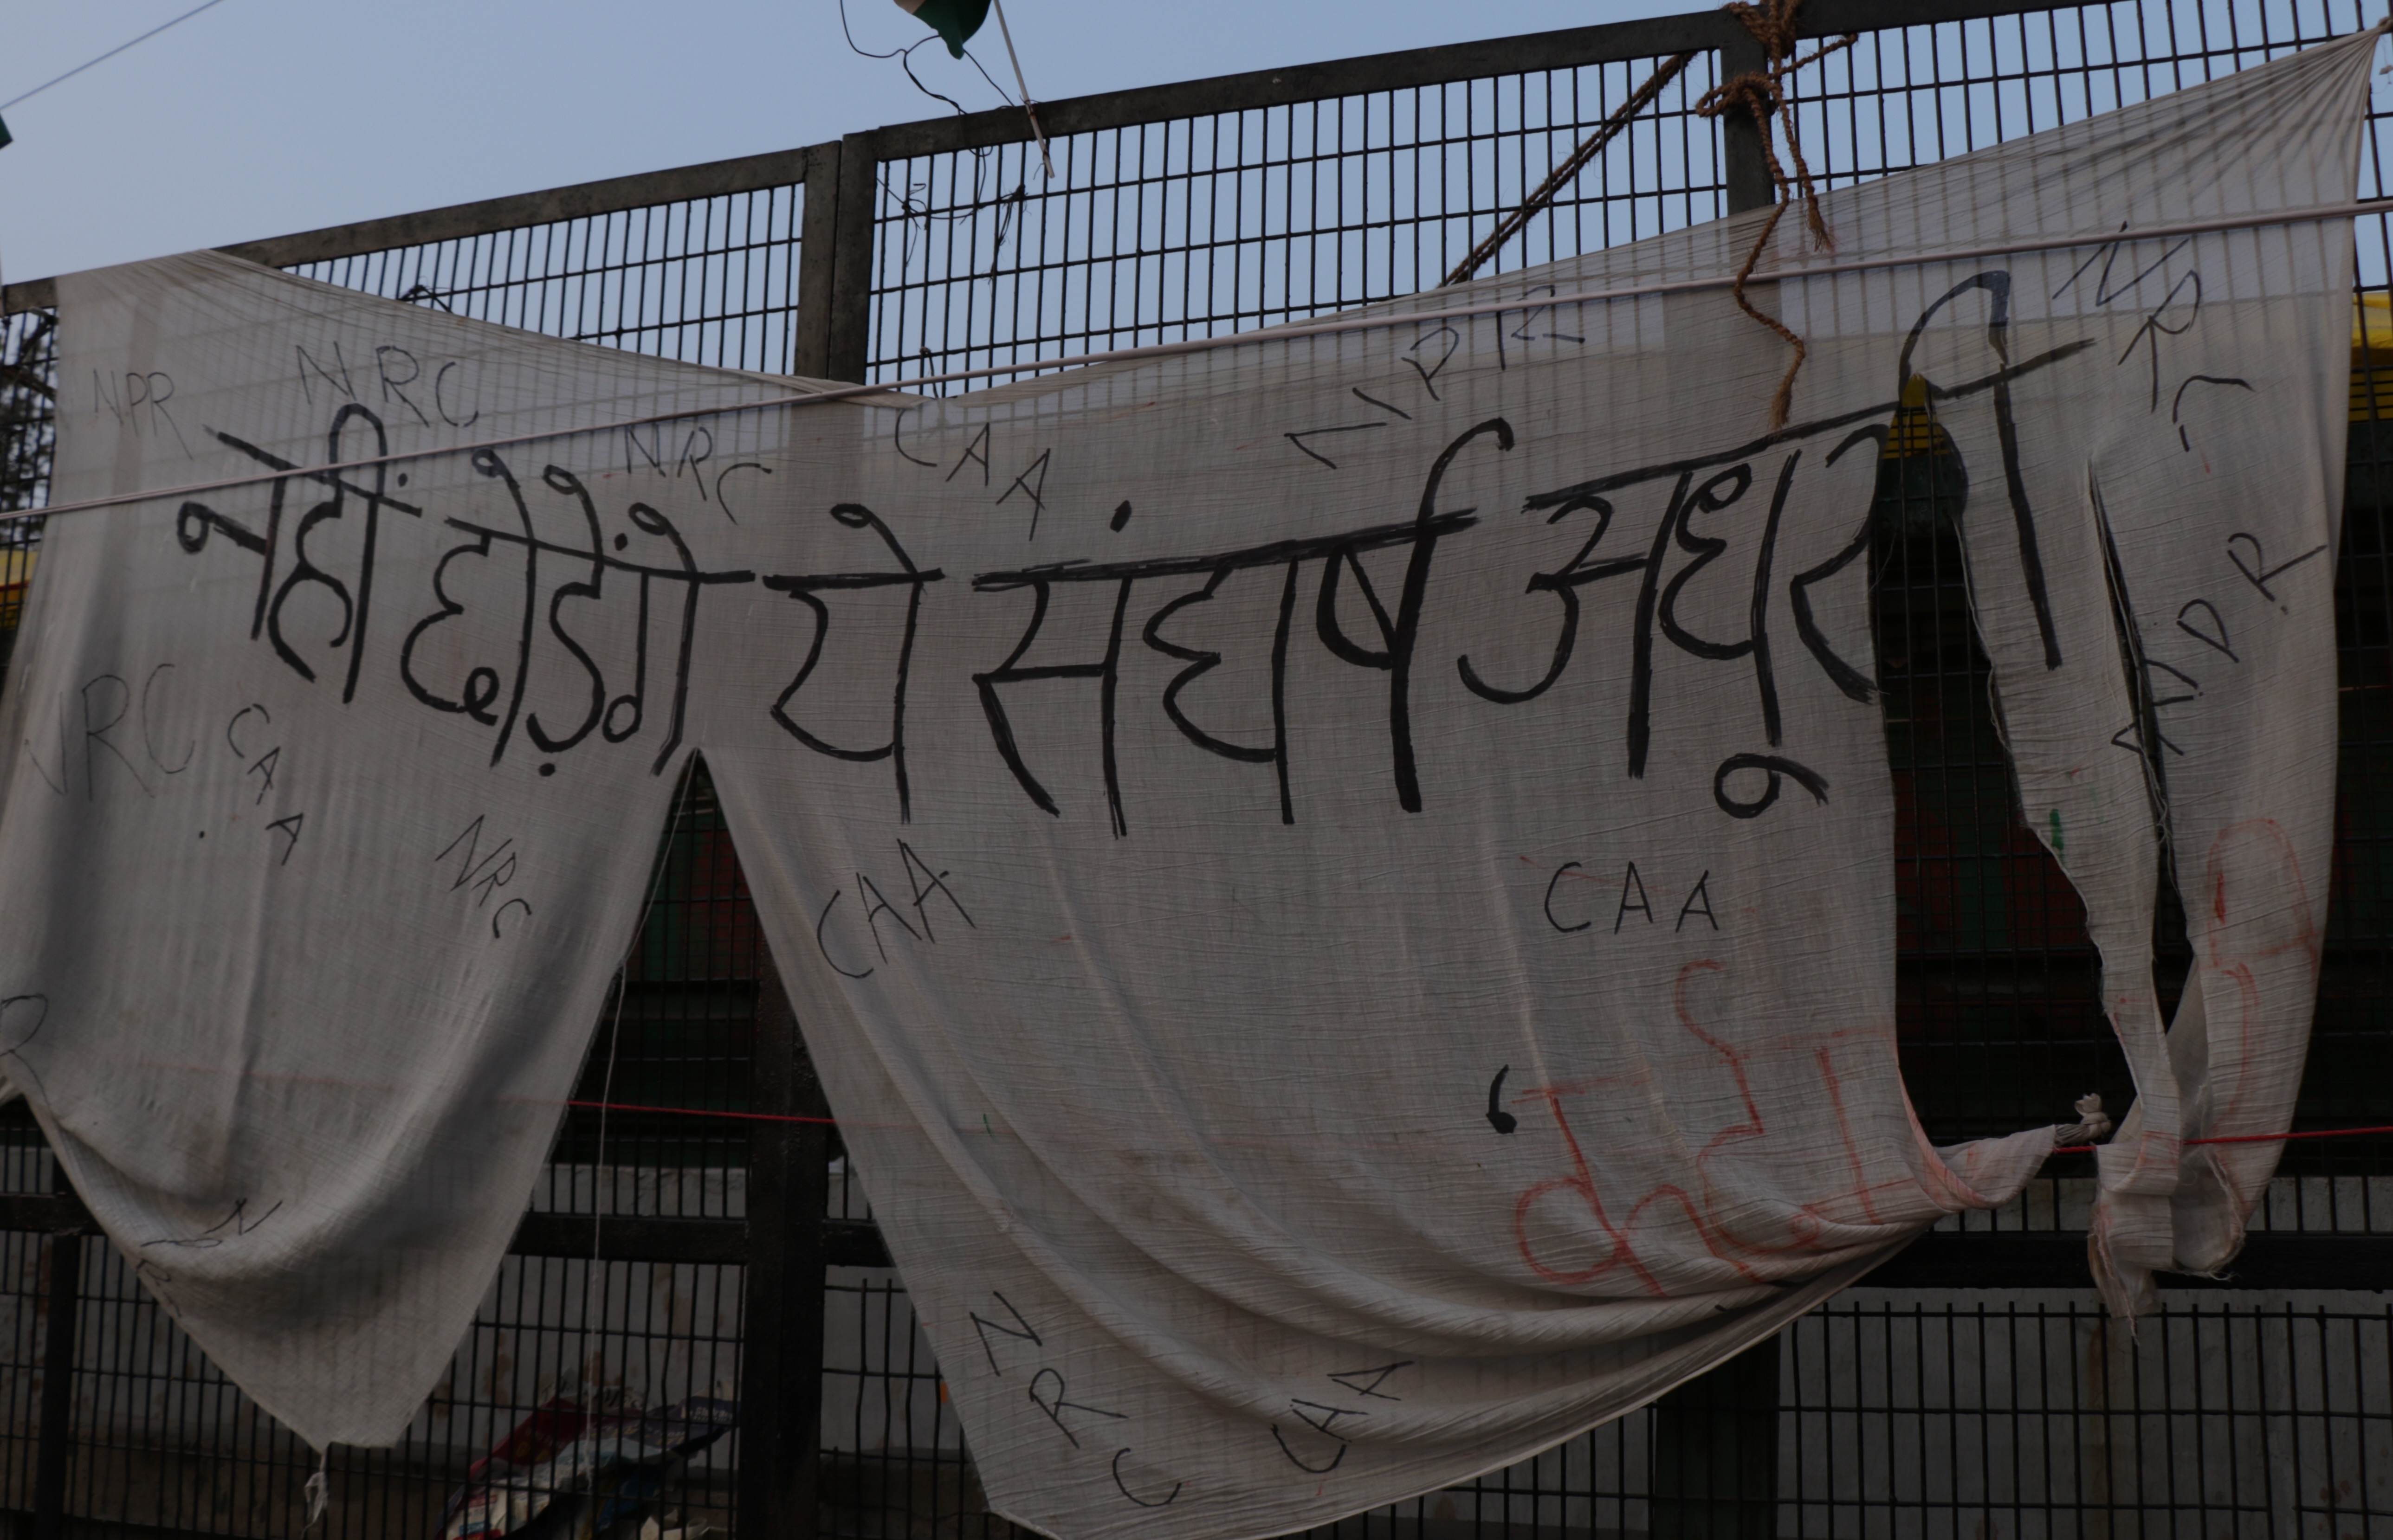 NPR NRC NRC CAA NPR NRC
नहीं छोड़ेंगे ये संघर्ष अधूरा
NPR
NRC CAA NRC CAA CAA
NRC CAA